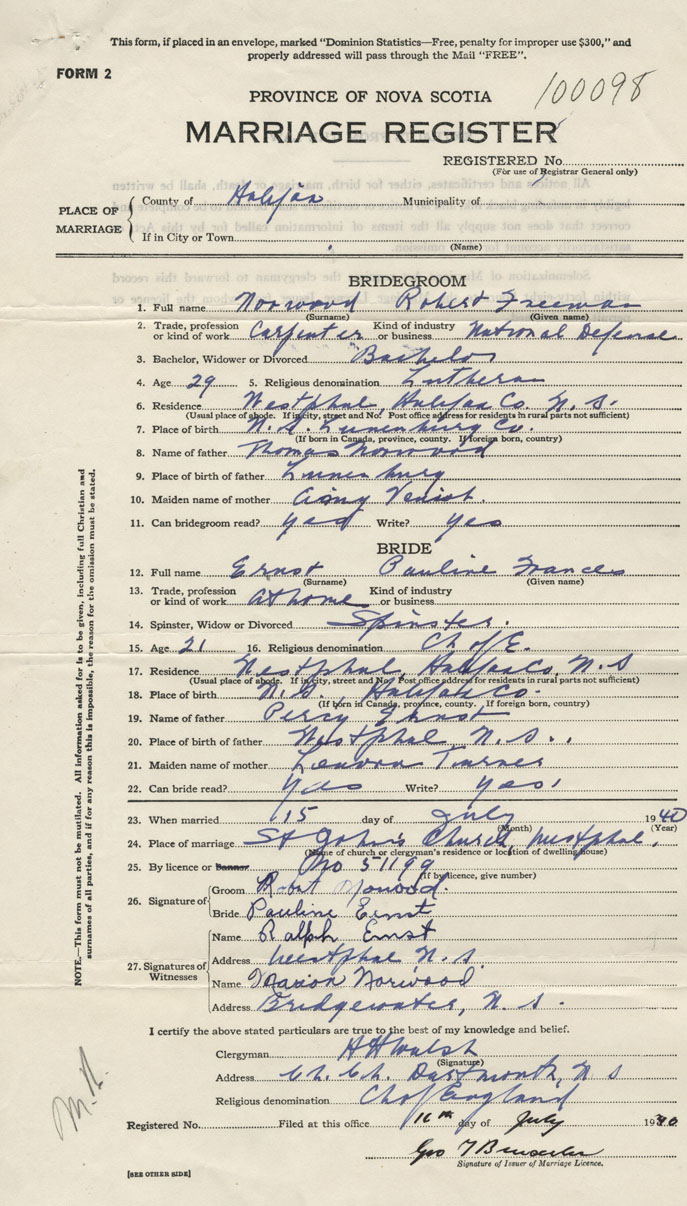 This form, if placed in an envelope, marked "Dominion Statistics—Free, penalty for improper use $300," and
properly addressed will pass through the Mail "FREE".
FORM 2
100098
PROVINCE OF NOVA SCOTIA
MARRIAGE REGISTER
REGISTERED No.
(For use of Registrar General only)
PLACE OF MARRIAGE
County of Halifax Municipality of
If in City or Town
(Name)
BRIDEGROOM
1. Full name Norwood Robert Freeman
(Surname) (Given name)
2. Trade, profession or kind of work Carpenter Kind of industry or business National Defense
3. Bachelor, Widower or Divorced Bachelor
4. Age 29 5. Religious denomination Lutheran
6. Residence Westphal, Halifax Co. N. S.
(Usual place of abode. If in city, street and No. Post office address for residents in rural parts not sufficient)
7. Place of birth N. S. Lunenburg Co.
(If born in Canada, province, county. If foreign born, country)
8. Name of father Thomas Norwood
9. Place of birth of father Lunenburg
10. Maiden name of mother
11. Can bridegroom read? yes Write? yes
BRIDE
12. Full name Ernst Pauline Frances
(Surname) (Given name)
13. Trade, profession or kind of work at home Kind of industry or business
14. Spinster, Widow or Divorced Spinster.
15. Age 21 16. Religious denomination Ch of E.
17. Residence Westphal, Halifax Co, N. S
(Usual place of abode. If in city, street and No. Post office address for residents in rural parts not sufficient)
18. Place of birth N. S., Halifax Co.
(If born in Canada, province, county. If foreign born, country)
19. Name of father Percy Ernst
20. Place of birth of father Westphal N. S.
21. Maiden name of mother Turner
22. Can bride read? Yes Write? yes
23. When married 15 day of July 1940
(Month) (Year)
24. Place of marriage St John's Church, Westphal,
(Name of church or clergyman's residence or location of dwelling house)
25. By licence or Banns No 51199
(If by licence, give number)
26. Signature of
Groom Norwood.
Bride Pauline Ernst
27. Signatures of Witnesses
Name Ralph Ernst
Address Westphal N. S.
Name Marion Norwood
Address Bridgewater, N. S.
I certify the above stated particulars are true to the best of my knowledge and belief.
Clergyman H H Walsh
(Signature)
Address Ch. Ch. Dartmouth, N S
Religious denomination Ch of England
Registered No. Filed at this office 16th day of July 1940
Geo
Signature of Issuer of Marriage Licence.
[SEE OTHER SIDE]
NOTE.—This form must not be mutilated. All information asked for is to be given, including full Christian and
surnames of all parties, and if for any reason this is impossible, the reason for the omission must be stated.